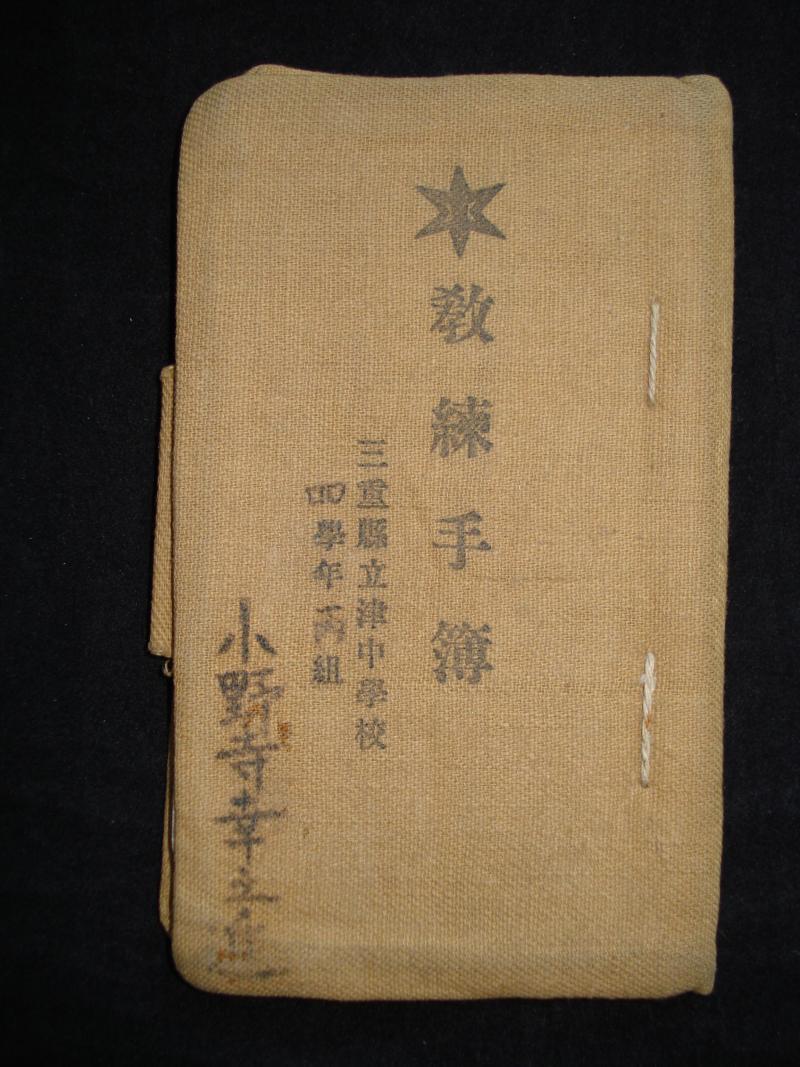 教練手簿
三重縣立津中學校
四學年丙組
小野寺幸之進